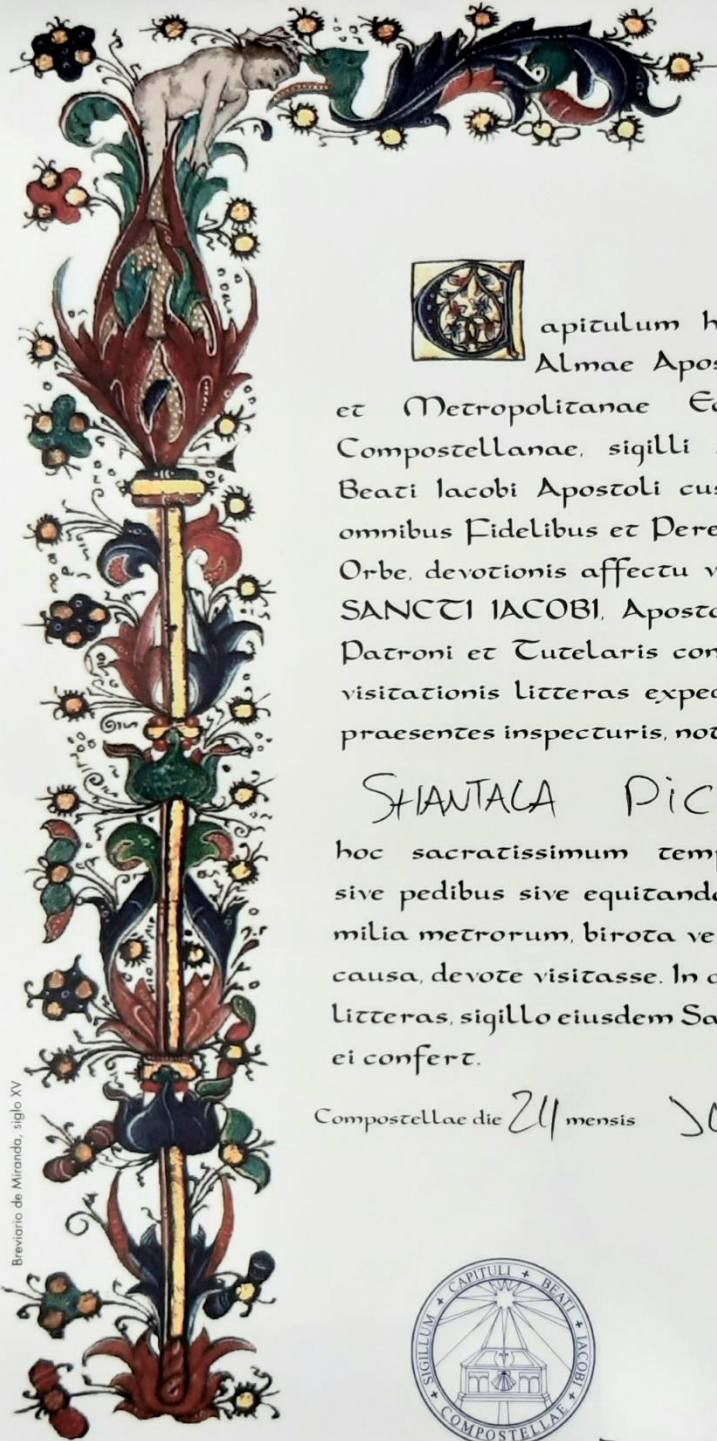 Capitulum h
Almae Apos
et Metropolitanae Ec
Compostellanae, sigilli
Beati Iacobi Apostoli cus
omnibus Fidelibus et Pere
Orbe, devotionis affectu v
SANCTI IACOBI, Aposto
Patroni et Tutelaris con
visitationis litteras exped
praesentes inspecturis, not
SHANTALA PiC
hoc sacratissimum temp
sive pedibus sive equitando
milia metrorum, birota ve
causa, devote visitasse. In
litteras, sigillo eiusdem Sa
ei confert.
Compostellae die 24 mensis
Breviario de Miranda, siglo XV
SIGILLUM + CAPITULI + BEATI + IACOBI + COMPOSTELLAE +